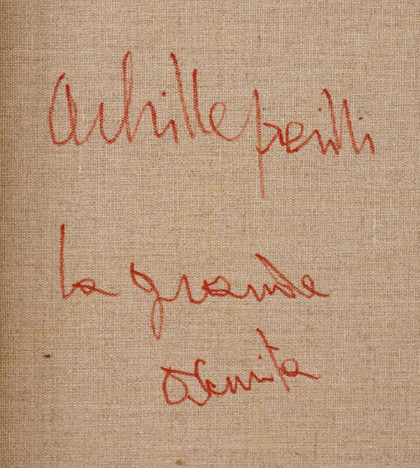 Achille perilli
la grande